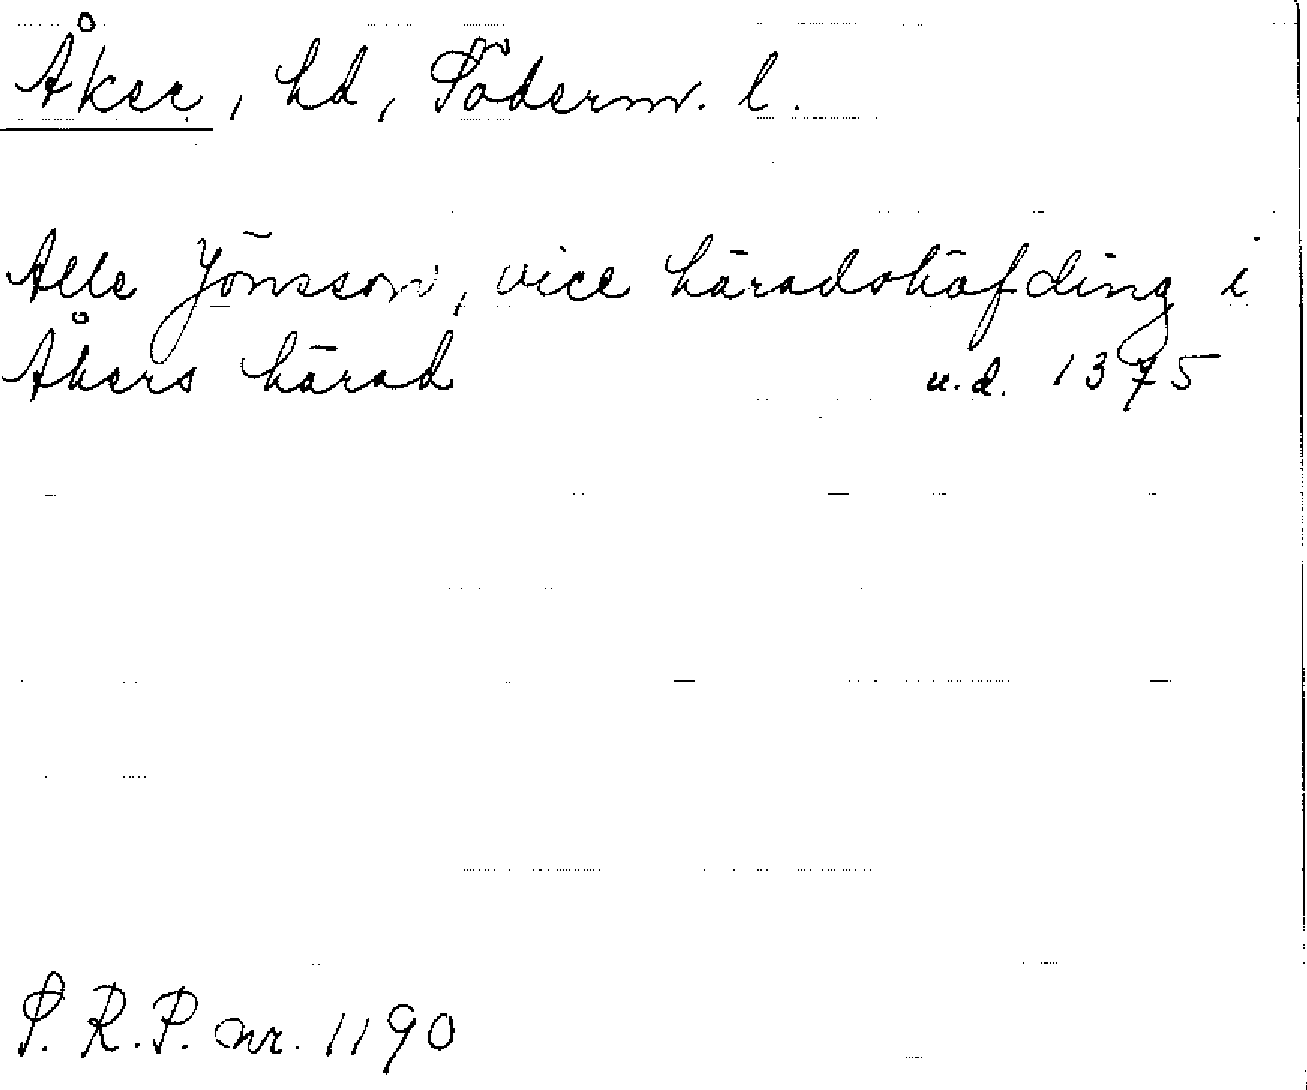 Åker, hd, Söderm. l.
Alle Jönsson, vice häradshöfding i
Åkers härad u.d. 1375
S. R. P. nr. 1190